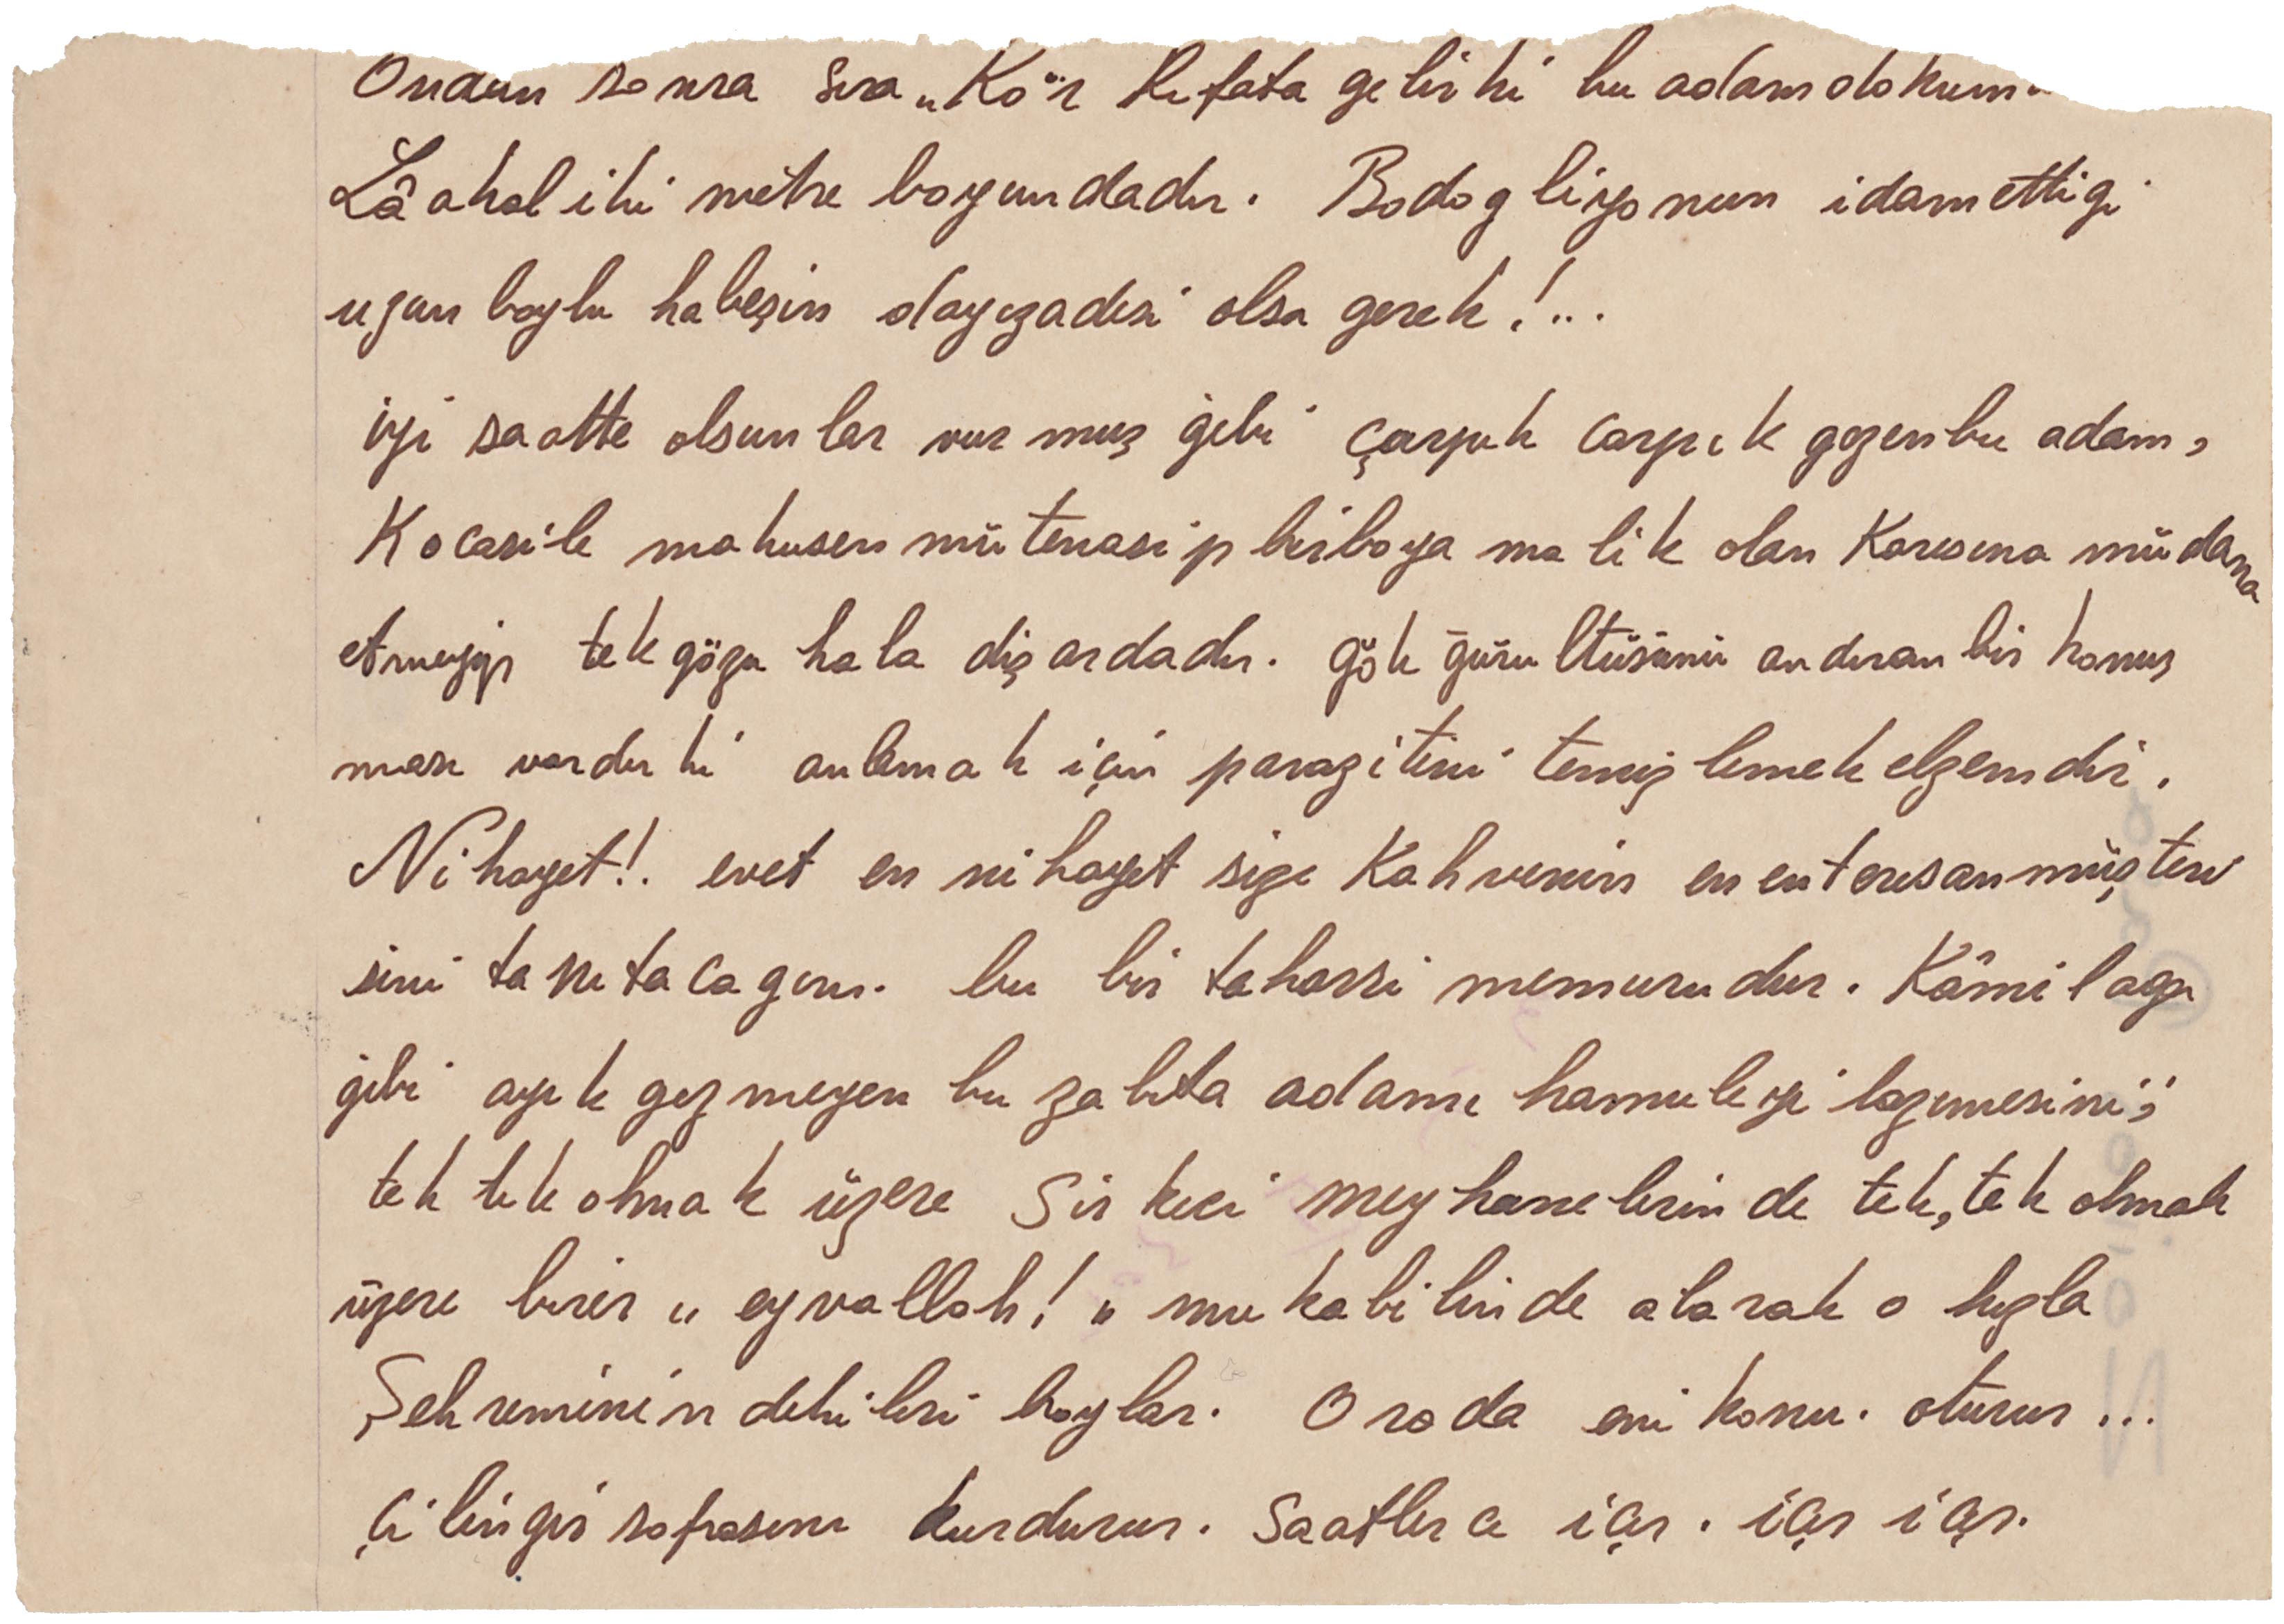 Ondan sonra sıra „Kör Rıfata gelirki bu adam dokuma
Lâakal iki metre boyundadır. Bodogliyonun idam ettigi
uzun boylu habeşin dayızadesi olsa gerek!...
iyi saatte olsunlar vurmuş gibi çarpık carpık gezen bu adam,
Kocasile makusen mütenasip bir boya malik olan Karısına müdana
etmeyip tek gözü hala dişardadır. gök gürültüsünü andıran bir konuş
ması vardırki anlamak için parazitini temizlemek elzemdir.
Nihayet!. evet en nihayet size Kahvenin en enteresan müşteri
sini tanıtacagım. bu bir taharri memurudur. Kâmil aga
gibi ayık gezmeyen bu zabıta adamı hamuleyi lazımesini;
tek tek olmak üzere Sirkeci meyhanelerinde tek, tek olmak
üzere birer „ eyvallah! „ mukabilinde alarak o hızla
Şehreminindekileri boylar. Orada eni konu. oturur...
Çilingir sofrasını kurdurur. Saatlerce içer. içer içer.